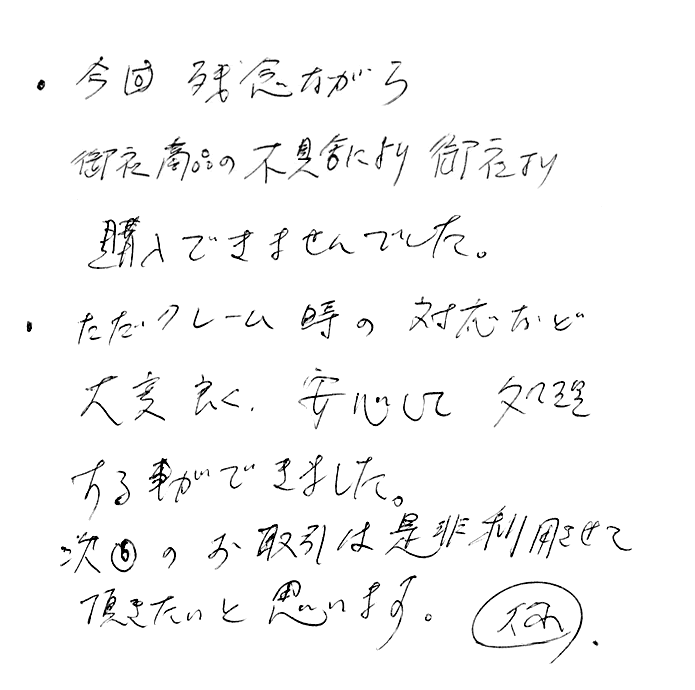 ・今回 残念ながら
御社商品の不具合により 御社より
購入できませんでした。
・ただクレーム時の対応など
大変良く、安心して処理
する事ができました。
次回のお取引は是非利用させて
頂きたいと思います。